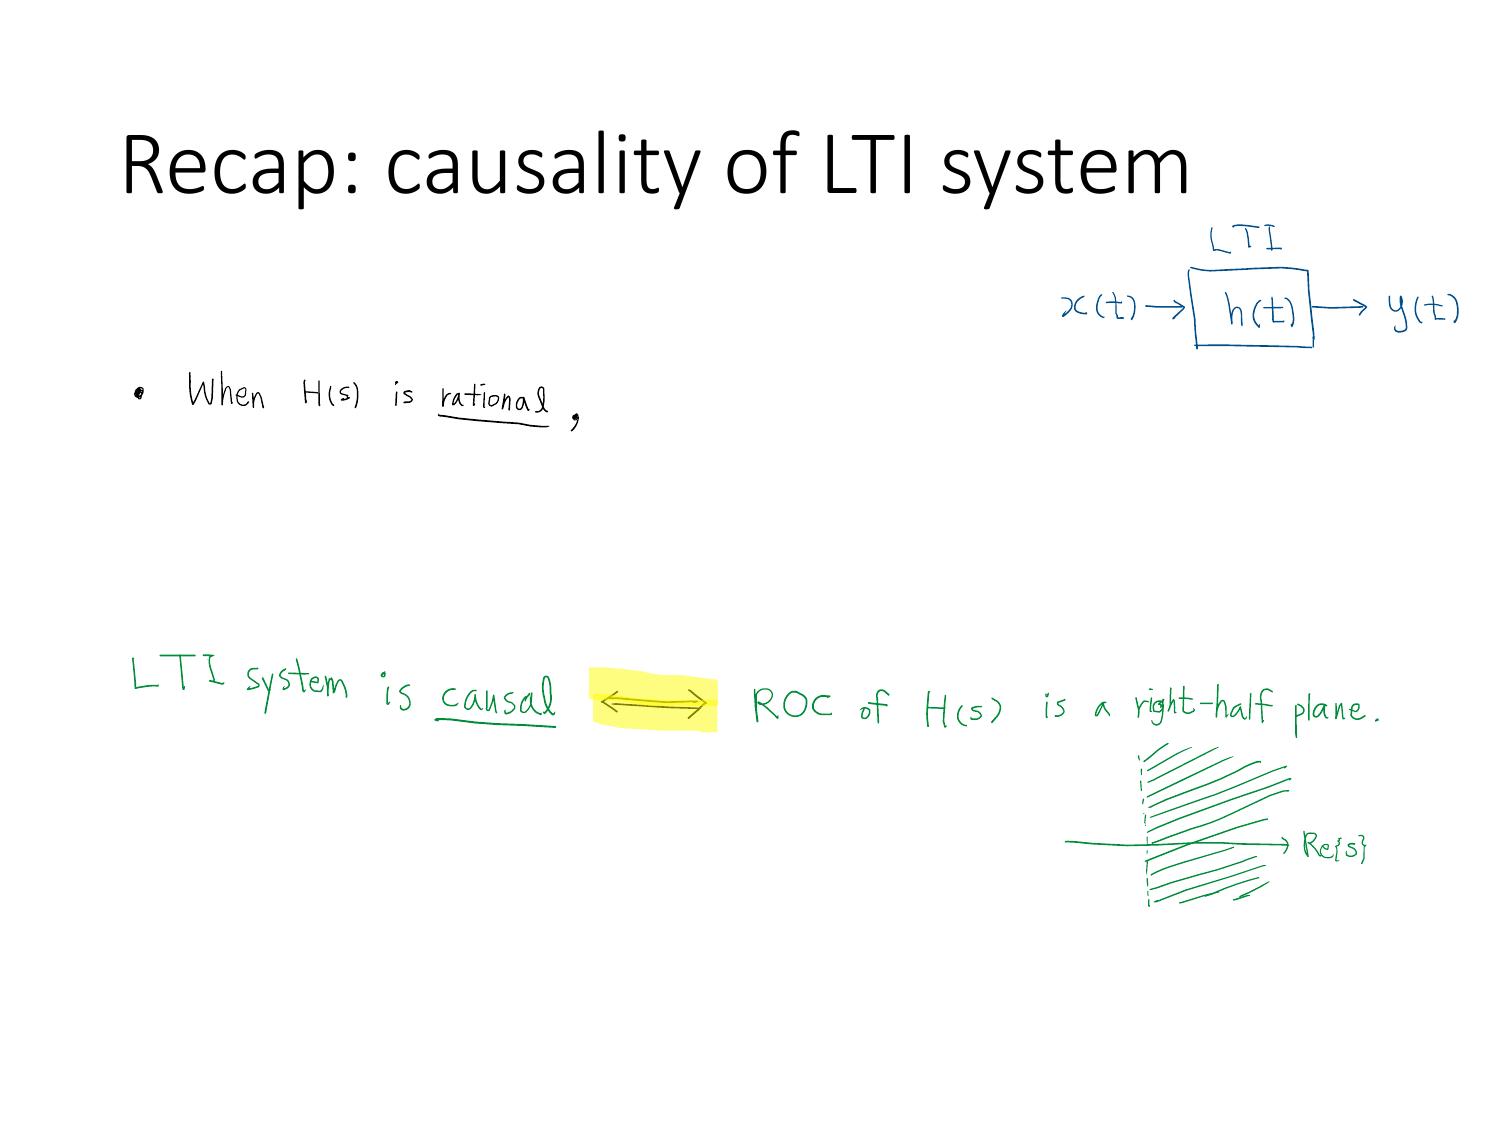 Recap: causality of LTI system
LTI
x(t) → h(t) → y(t)
• When H(s) is rational,
LTI system is causal ⟷ ROC of H(s) is a right-half plane.
Re{s}